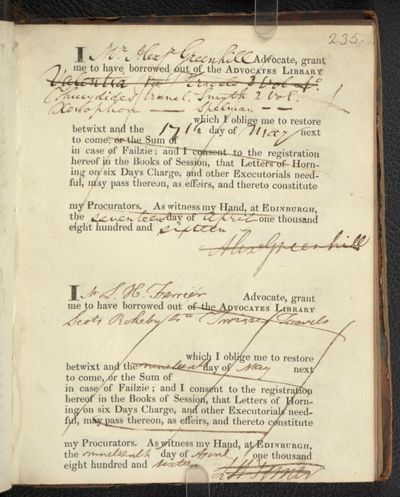 235.
I Mr Alexr Greenhill Advocate, grant
me to have borrowed out of the ADVOCATES LIBRARY
Valentia Travels 3 Vol. 4o.
Thucydides transl. Smith 2 Vol.
Xenophon — Spelman —
which I oblige me to restore
betwixt and the 17th day of May next
to come, or the Sum of
in case of Failzie; and I consent to the registration
hereof in the Books of Session, that Letters of Horn-
ing on six Days Charge, and other Executorials need-
ful, may pass thereon, as effeirs, and thereto constitute
my Procurators. As witness my Hand, at EDINBURGH,
the seventeenth day of April one thousand
eight hundred and sixteen
Alex Greenhill
I Mr S. H. Ferrier Advocate, grant
me to have borrowed out of the ADVOCATES LIBRARY
Scots Rokeby Travels
which I oblige me to restore
betwixt and the nineteenth day of May next
to come, or the Sum of
in case of Failzie; and I consent to the registration
hereof in the Books of Session, that Letters of Horn-
ing on six Days Charge, and other Executorials need-
ful, may pass thereon, as effeirs, and thereto constitute
my Procurators. As witness my Hand, at EDINBURGH,
the nineteenth day of April one thousand
eight hundred and sixteen